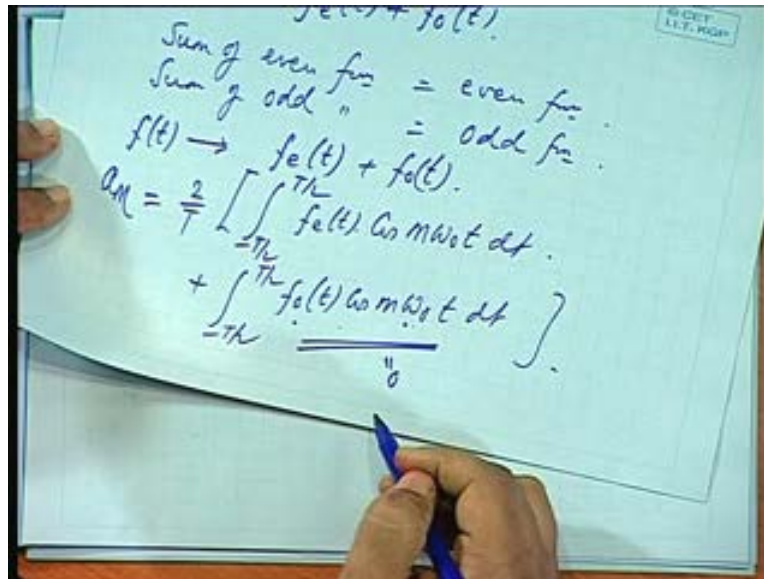 fe(t) + fo(t).
© CET
I.I.T. KGP
Sum of even fns = even fn.
Sum of odd " = odd fn.
f(t) → fe(t) + fo(t).
am = 2/T [ ∫_{-T/2}^{T/2} fe(t). Cos mω₀t dt.
+ ∫_{-T/2}^{T/2} fo(t) Cos mω₀t dt ].
" 0